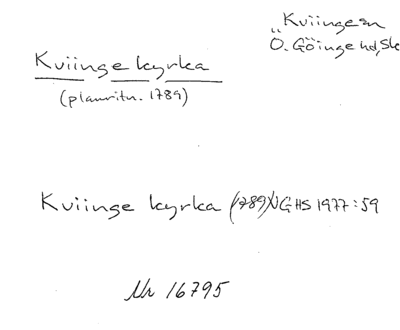 Kviinge sn
Ö. Göinge hd, Sk
Kviinge kyrka
(planritn. 1789)
Kviinge kyrka (1789) NGHS 1977:59
Nr 16795